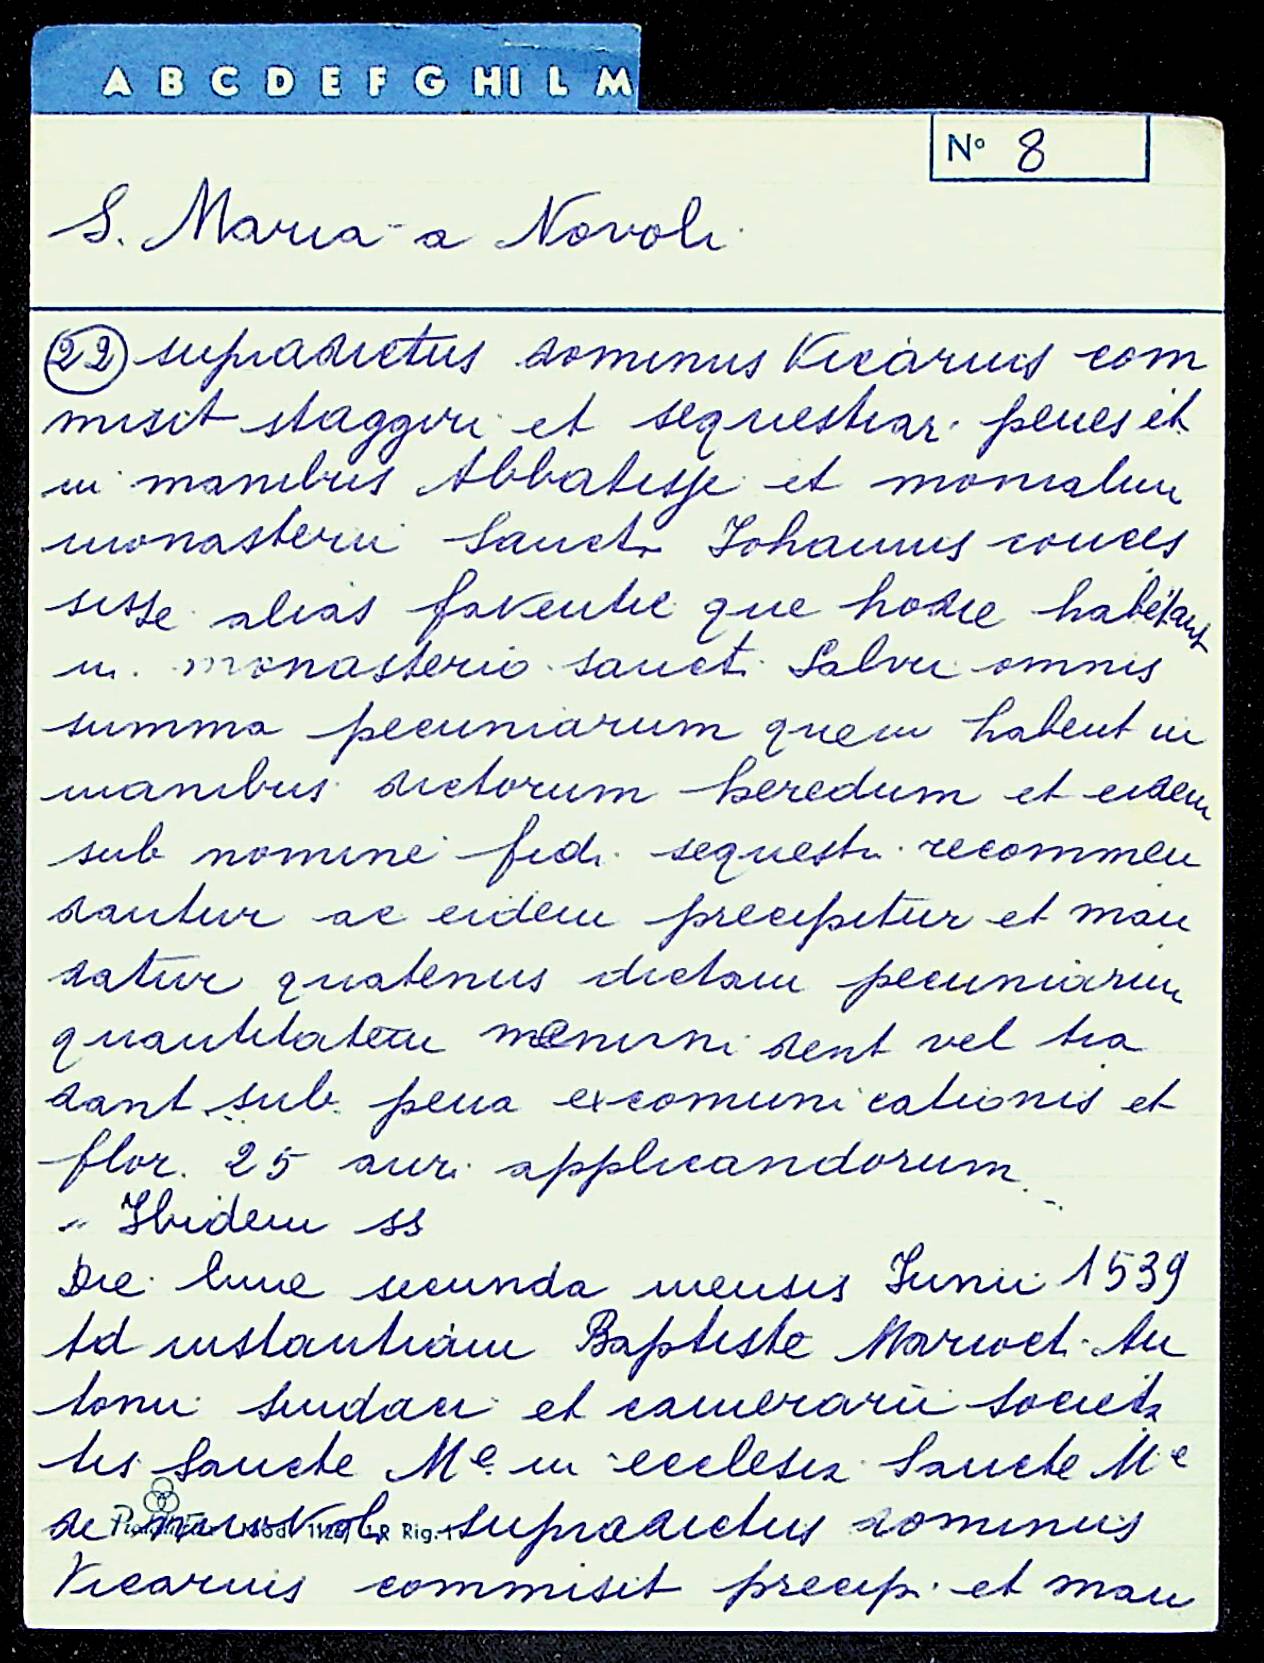 A B C D E F G HI L M
N° 8
S. Maria a Novoli
22 supradictus dominus Vicarius com
misit staggiri et sequestrar. penes et
in manibus Abbatisse et monialium
monasterii Sancti Johannis conces
sisse alias faventie que hodie habitant
in monasterio sancti Salvi omnis
summa pecuniarum quem habent in
manibus dictorum heredum et eidem
sub nomine fidi sequestri recommen
dantur ac eidem precipitur et man
datur quatenus dictam pecuniarum
quantitatem menini dent vel tra
dant sub pena excomunicationis et
flor. 25 auri applicandorum
" Ibidem ss
Die lune secunda mensis Junii 1539
Ad instantiam Baptiste Marioti An
tonii sindaci et camerarii societa
tis Sancte Mᵉ in ecclesia Sancte Mᵉ
de Novoli supradictus dominus
Vicarius commisit precip. et man